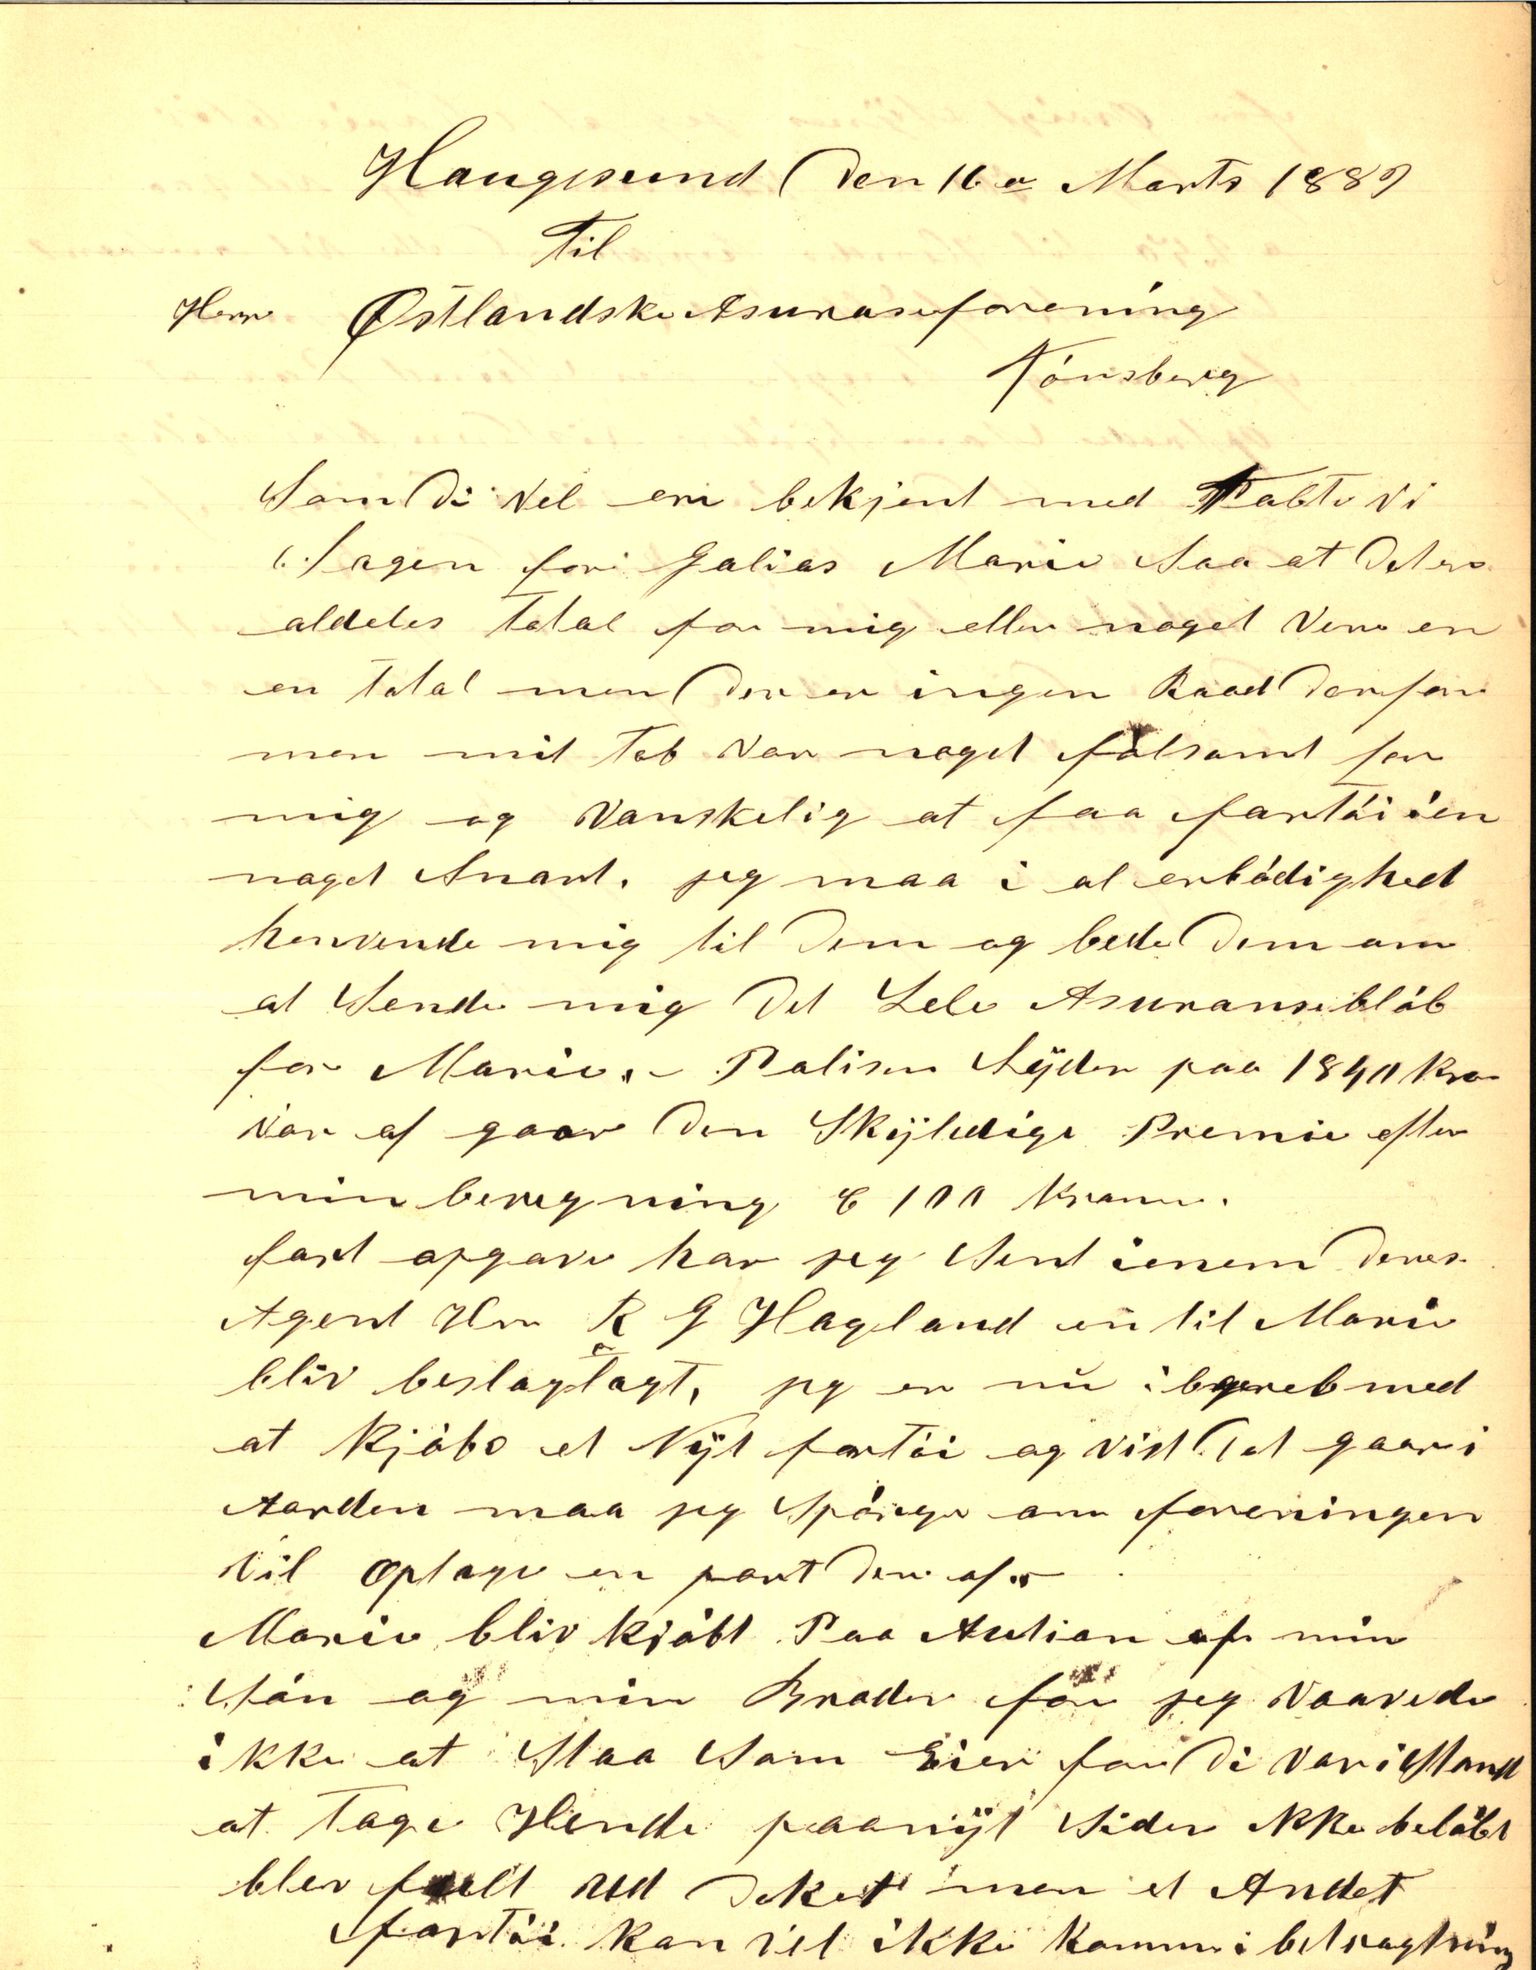 Haugesund Den 16de Marts 1889
Til
Herr Østlandske Asuraseforening
Tónsberg
Som Di Vel ere bekjent med Tabte Vi
Sagen for Galias Marie Saa at Det er
aldeles Total for mig eller noget Vere en
en Total men Der er ingen Raad Derfor
men mit Tab Var noget fólsomt for
mig og Vanskelig at faa fartói ien
noget Snart. jeg maa i al erbódighed
henvende mig til Dem og bede Dem om
at Sende mig Det Hele Asuransebelób
for Marie. Polisen Lÿder paa 1840 Kro
Var af gaar Den Skÿledige Premie efter
min beregning 100 Kroner.
fart opgave har jeg Sent ienem Deres
Agent Hrr K G Hagland en til Marie
bliv beslaglagt, jeg er nu i begreb med
at Kjóbe et Nÿt fartói og Vist Det gaar i
Aarden maa jeg Spórge om foreningen
Vil Optage en part Der af
Marie bliv kjóbt Paa Autian af min
Són og min Broder for jeg Vaavede
ikke at Staa Som Eier for Di Var i Stand
at Tage Hende paanÿt Siden ikke belóbt
blev fult ud Deket men et Andet
fartói kan Vel ikke komme i betragtning